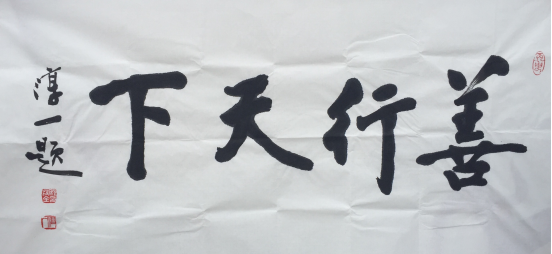 善行天下
淳一题